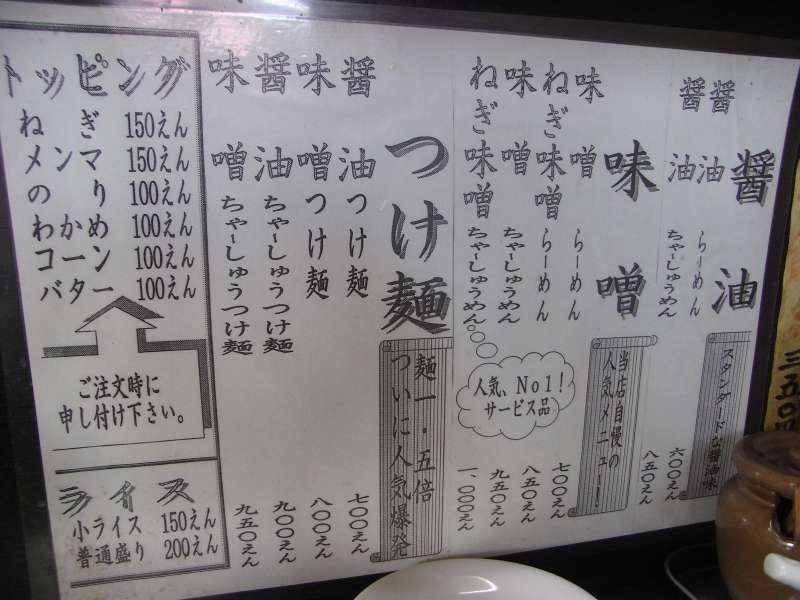 醤油
スタンダードな醤油味
醤油らーめん 六〇〇えん
醤油ちゃーしゅうめん 八五〇えん
味噌
当店自慢の
人気メニュー!
味噌らーめん 七〇〇えん
ねぎ味噌らーめん 八五〇えん
味噌ちゃーしゅうめん 九五〇えん
ねぎ味噌ちゃーしゅうめん 一、〇〇〇えん
人気、No1!
サービス品
つけ麺
麺一・五倍
ついに人気爆発
醤油つけ麺 七〇〇えん
味噌つけ麺 八〇〇えん
醤油ちゃーしゅうつけ麺 九〇〇えん
味噌ちゃーしゅうつけ麺 九五〇えん
トッピング
ねぎ 150えん
メンマ 150えん
のり 100えん
わかめ 100えん
コーン 100えん
バター 100えん
ご注文時に
申し付け下さい。
ライス
小ライス 150えん
普通盛り 200えん